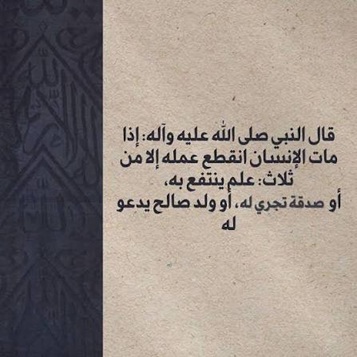 قال النبي صلى الله عليه وآله: إذا
مات الإنسان انقطع عمله إلا من
ثلاث: علم ينتفع به،
أو صدقة تجري له، أو ولد صالح يدعو
له